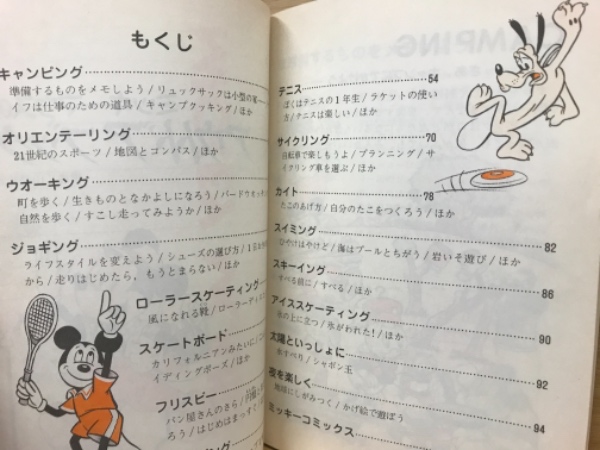 もくじ
キャンピング
準備するものをメモしよう/リュックサックは小型の家
イフは仕事のための道具/キャンプクッキング/ほか
オリエンテーリング
21世紀のスポーツ/地図とコンパス/ほか
ウオーキング
町を歩く/生きものとなかよしになろう/バードウォッ
自然を歩く/すこし走ってみようか/ほか
ジョギング
ライフスタイルを変えよう/シューズの選び方/1日
から/走りはじめたら、もうとまらない/ほか
ローラースケーティング
風になれる靴/ローラーディ
スケートボード
カリフォルニアンみたいに
イディングポーズ/ほか
フリスビー
パン屋さんのさら
ろう/はじめはまっすぐ
MPING
テニス 54
ぼくはテニスの1年生/ラケットの使い
方/テニスは楽しい/ほか
サイクリング 70
自転車で楽しもうよ/プランニング/サ
イクリング車を選ぶ/ほか
カイト 78
たこのあげ方/自分のたこをつくろう/ほか
スイミング 82
ひやけはやけど/海はプールとちがう/岩いそ遊び/ほか
スキーイング 86
すべる前に/すべる/ほか
アイススケーティング 90
氷の上に立つ/氷がわれた!/ほか
太陽といっしょに 92
水すべり/シャボン玉
夜を楽しく 94
地球にしがみつく/かげ絵で遊ぼう
ミッキーコミックス